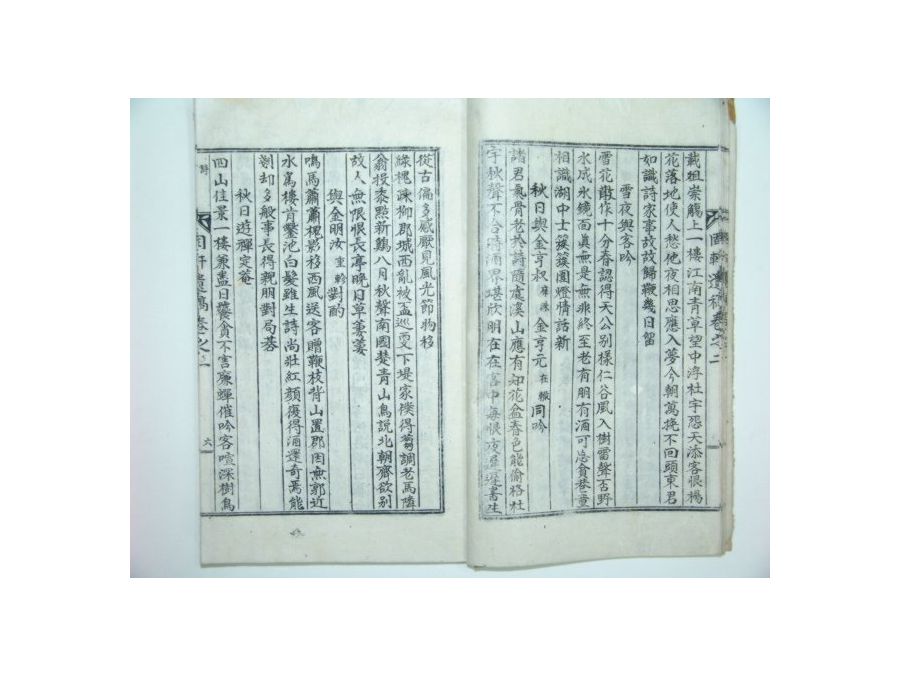 載柤崇觴上一樓江南青草望中浮杜宇怨天添客恨楊
花落地使人愁他夜相思應入夢今朝萬挽不回頭東君
如識詩家事故故歸鞭幾日留
雪夜與客吟
雪花散作十分春認得天公別樣仁谷風入樹雷聲否野
水成氷鏡面眞無是無非終至老有朋有酒可忘貧巷童
相識湖中士簇簇圍燈情話新
秋日與金亨叔 金亨元在 同吟
諸君氣骨老於詩隨處溪山應有知花盆春色能偷格杜
宇秋聲不合時酒界堪欣明在在客中每恨夜遲遲書生
從古偏多感厭見風光節物移
綠槐疎柳郡城西亂被盃巡更下堤家僕得蒭調老馬隣
翁投黍點新鷄八月秋聲南國楚青山鳥說北朝齊欲別
故人無限恨長亭晩日草萋萋
與金明汝 對酌
鳴馬蕭蕭槐影移西風送客贈鞭枝背山置郡因無郭近
水爲樓肯鑿池白髮雖生詩尚壯紅顏復得酒還奇焉能
剝却多般事長得親朋對局碁
秋日遊禪定菴
四山佳景一樓兼盡日饕貪不害廉蟬催吟客喧深樹鳥
軒遺稿卷之二
詩
六